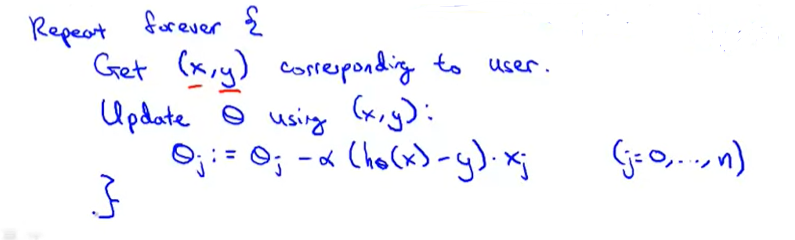 Repeat forever {
Get (x, y) corresponding to user.
Update θ using (x, y):
θj := θj - α (hθ(x) - y) · xj (j=0, ..., n)
}